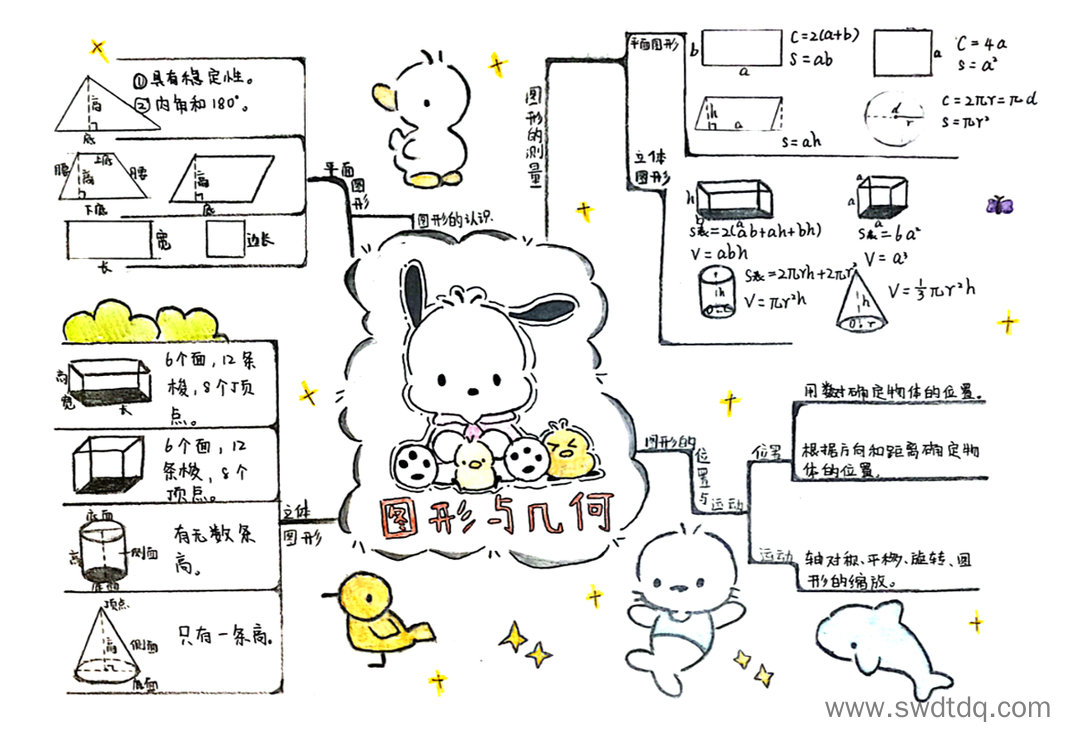 图形与几何
图形的认识
平面
图
形
①具有稳定性。
②内角和180°。
高
底
上底
腰
高
腰
下底
高
底
宽
长
边长
立体
图形
6个面，12条
棱，8个顶
点。
高
宽
长
6个面，12
条棱，8个
顶点。
底面
高
侧面
底面
有无数条
高。
顶点
高
侧面
底面
只有一条高。
图
形
的
测
量
平面图形
b
a
C=2(a+b)
S=ab
a
C=4a
S=a²
h
a
S=ah
d
r
C=2πr=πd
S=πr²
立体
图形
h
b
a
S表=2(ab+ah+bh)
V=abh
a
a
a
S表=6a²
V=a³
h
S表=2πrh+2πr²
V=πr²h
h
O
r
V=⅓πr²h
图形的
位
置
与
运动
位置
用数对确定物体的位置。
根据方向和距离确定物
体的位置
运动
轴对称、平移、旋转、图
形的缩放。
www.swdtdq.com